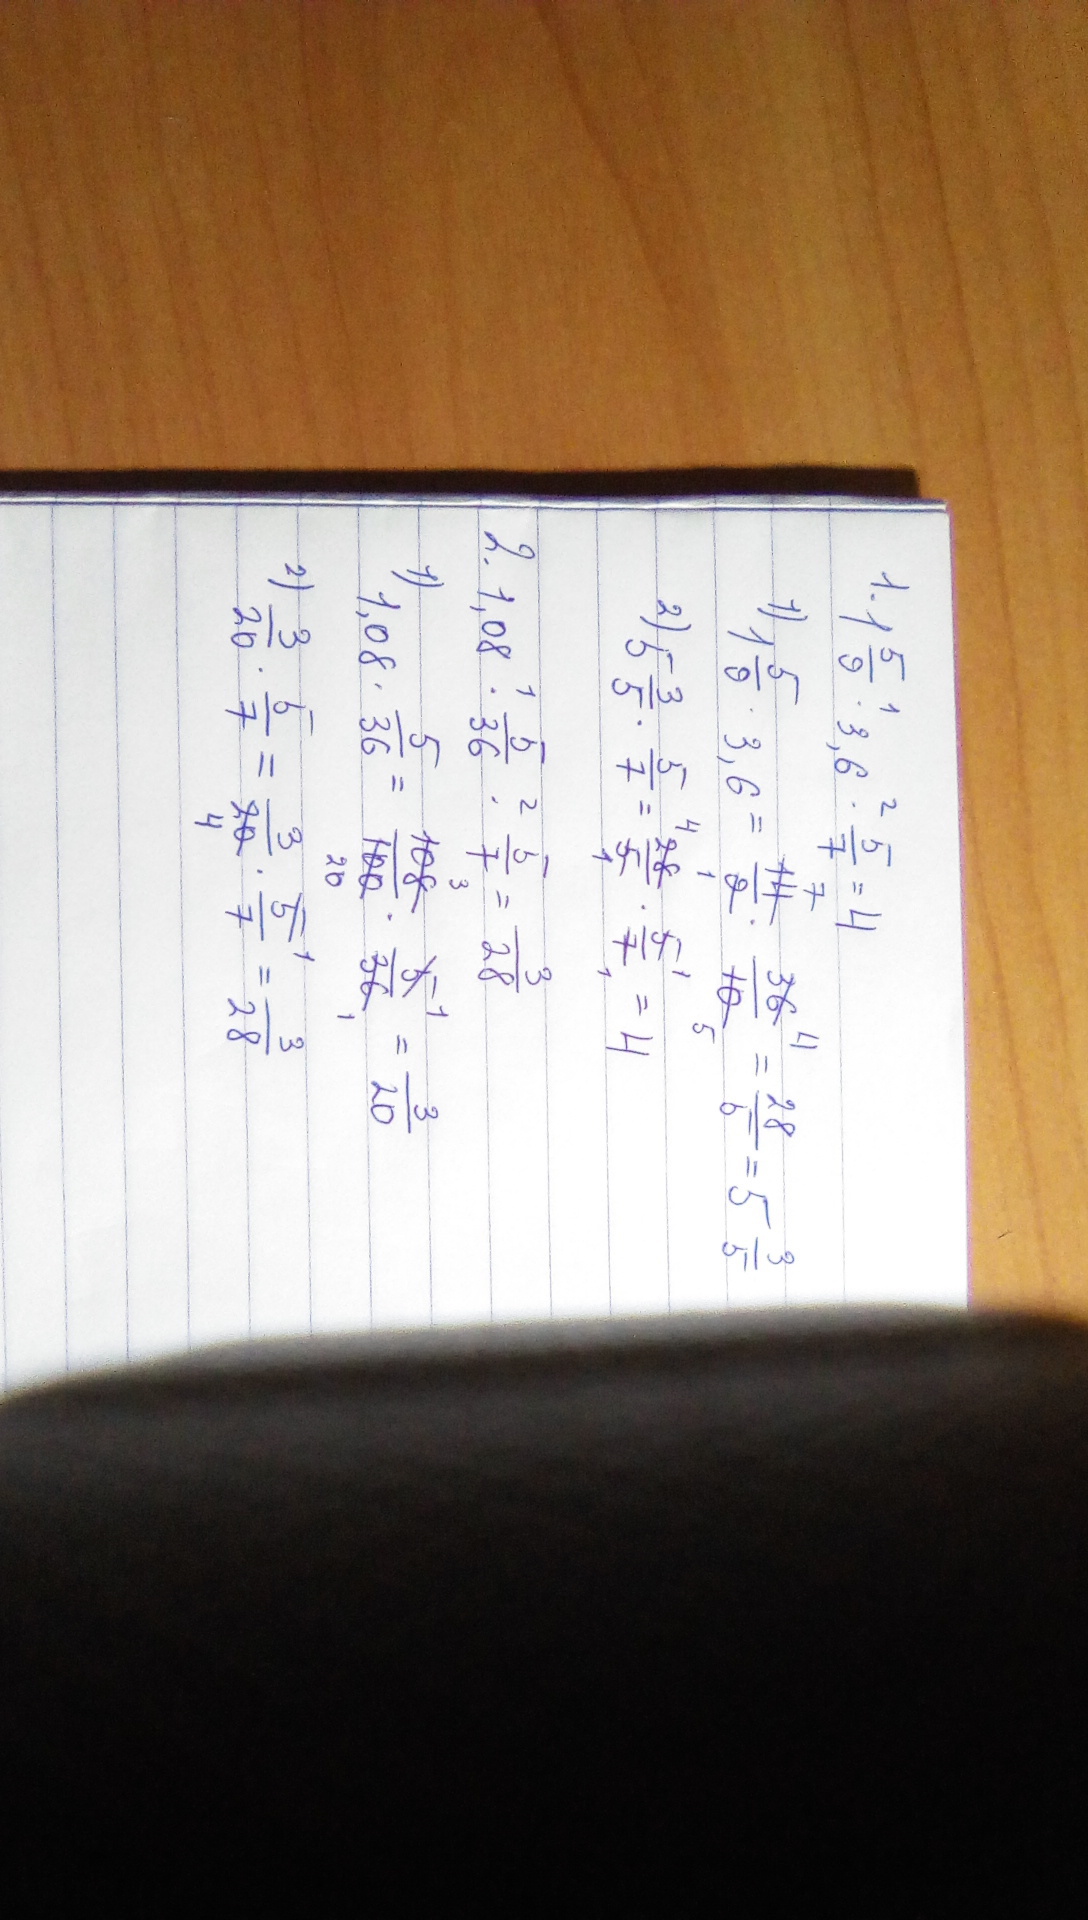 1. 1 5/9 ·¹ 3,6 ·² 5/7 = 4
1) 1 5/9 · 3,6 = 14/9 · 36/10 = 28/5 = 5 3/5
2) 5 3/5 · 5/7 = 28/5 · 5/7 = 4
2. 1,08 ·¹ 5/36 ·² 5/7 = 3/28
1) 1,08 · 5/36 = 108/100 · 5/36 = 3/20
2) 3/20 · 5/7 = 3/20 · 5/7 = 3/28